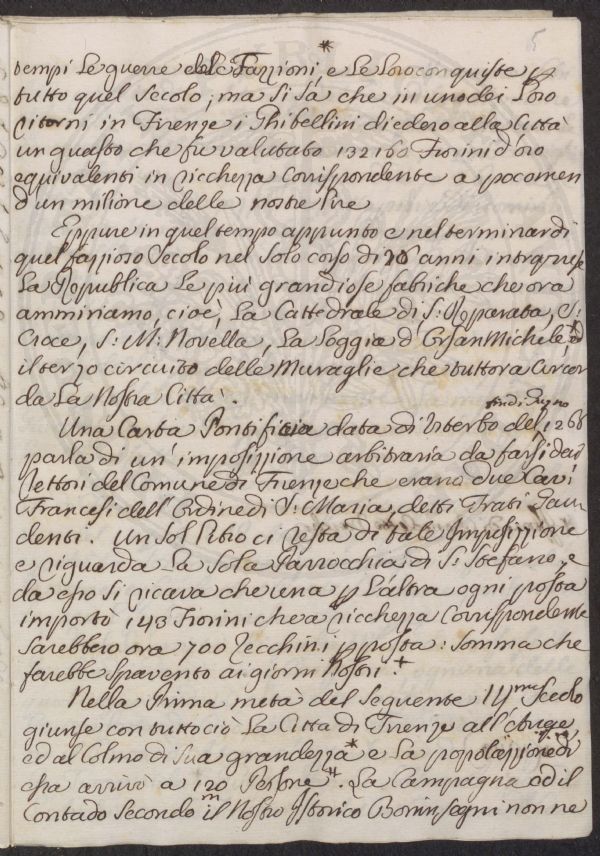 5
tempi le guerre delle Fazzioni,* e le loro conquiste p
tutto quel Secolo; ma si sà che in uno dei Loro
ritorni in Firenze i Ghibellini diedero alla Città
un guasto che fu valutato 132160 Fiorini d'oro
equivalenti in ricchezza corrispondente a poco men
d'un milione delle nostre lire
Eppure in quel tempo appunto e nel terminar di
quel fazzioso Secolo nel solo corso di 26 anni intraprese
La Republica le più grandiose fabriche che ora
ammiriamo, cioè, La Cattedrale di S: Reparata, S:
Croce, S: M: Novella, La Loggia d'Orsan Michele,* ed
il terzo circuito delle Muraglie che tuttora circon
da La Nostra Città.
Una Carta Pontificia data di Viterbo del 1266
parla di un' imposizzione arbitraria da farsi dai
Rettori del Comune di Firenze che erano due Cav:i
Francesi dell' Ordine di S: Maria, detti Frati Gau
denti. Un sol libro ci resta di tale Imposizzione
e riguarda La Sola Parrocchia di S: Stefano, e
da esso si ricava che una p l'altra ogni posta
importò 143 Fiorini che a ricchezza corrispondente
sarebbero ora 700 Zecchini p posta: somma che
farebbe spavento ai giorni Nostri.+
Nella Prima metà del Seguente 14mo Secolo
giunse con tutto ciò La Città di Firenze all' Auge,
ed al Colmo di sua grandezza* e La popolazzione di
essa arrivò a 120 m Persone #. La Campagna od il
Contado secondo il Nostro Istorico Boninsegni non ne